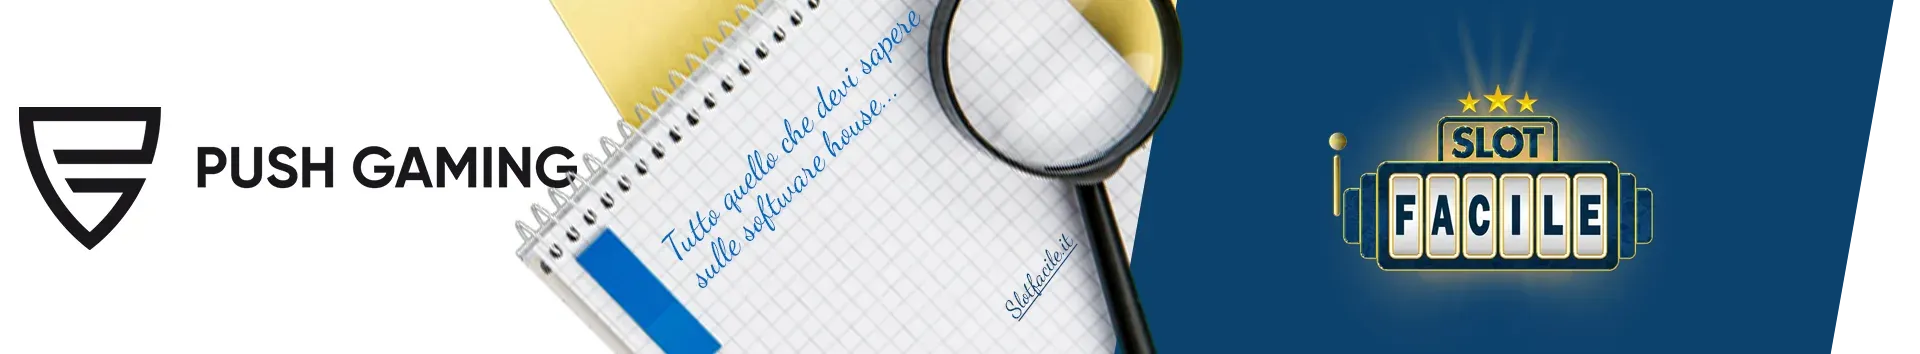 PUSH GAMING
Tutto quello che devi sapere
sulle software house...
Slotfacile.it
SLOT
FACILE